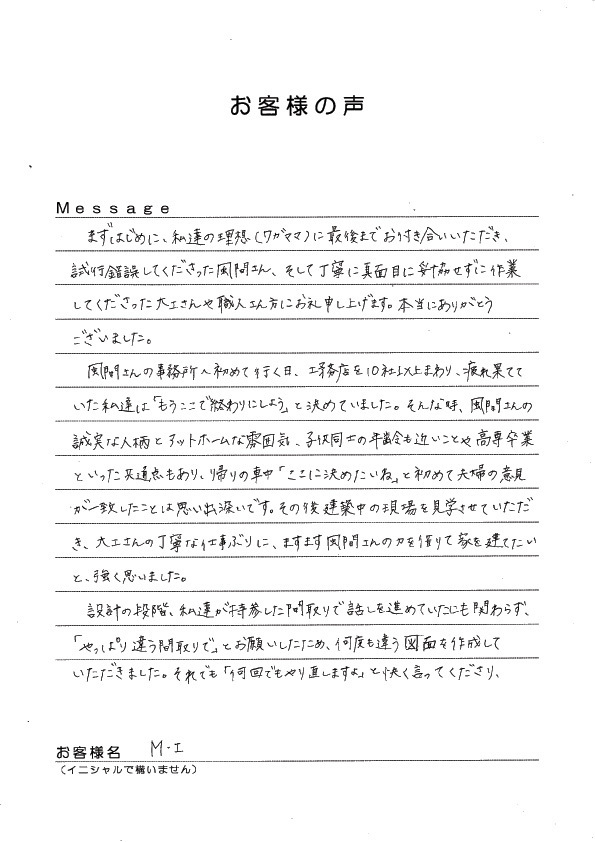 お客様の声
Message
まずはじめに、私達の理想(ワガママ)に最後までお付き合いいただき、
試行錯誤してくださった風間さん、そして丁寧に真面目に妥協せずに作業
してくださった大工さんや職人さん方にお礼申し上げます。本当にありがとう
ございました。
風間さんの事務所へ初めて行く日、工務店を10社以上まわり、疲れ果てて
いた私達は「もうここで終わりにしよう」と決めていました。そんな時、風間さんの
誠実な人柄とアットホームな雰囲気、子供同士の年齢も近いことや高専卒業
といった共通点もあり、帰りの車中「ここに決めたいね」と初めて夫婦の意見
が一致したことは思い出深いです。その後建築中の現場を見学させていただ
き、大工さんの丁寧な仕事ぶりに、ますます風間さんの力を借りて家を建てたい
と、強く思いました。
設計の段階、私達が持参した間取りで話しを進めていたにも関わらず、
「やっぱり違う間取りで」とお願いしたため、何度も違う図面を作成して
いただきました。それでも「何回でもやり直しますよ」と快く言ってくださり、
お客様名 M・I
(イニシャルで構いません)